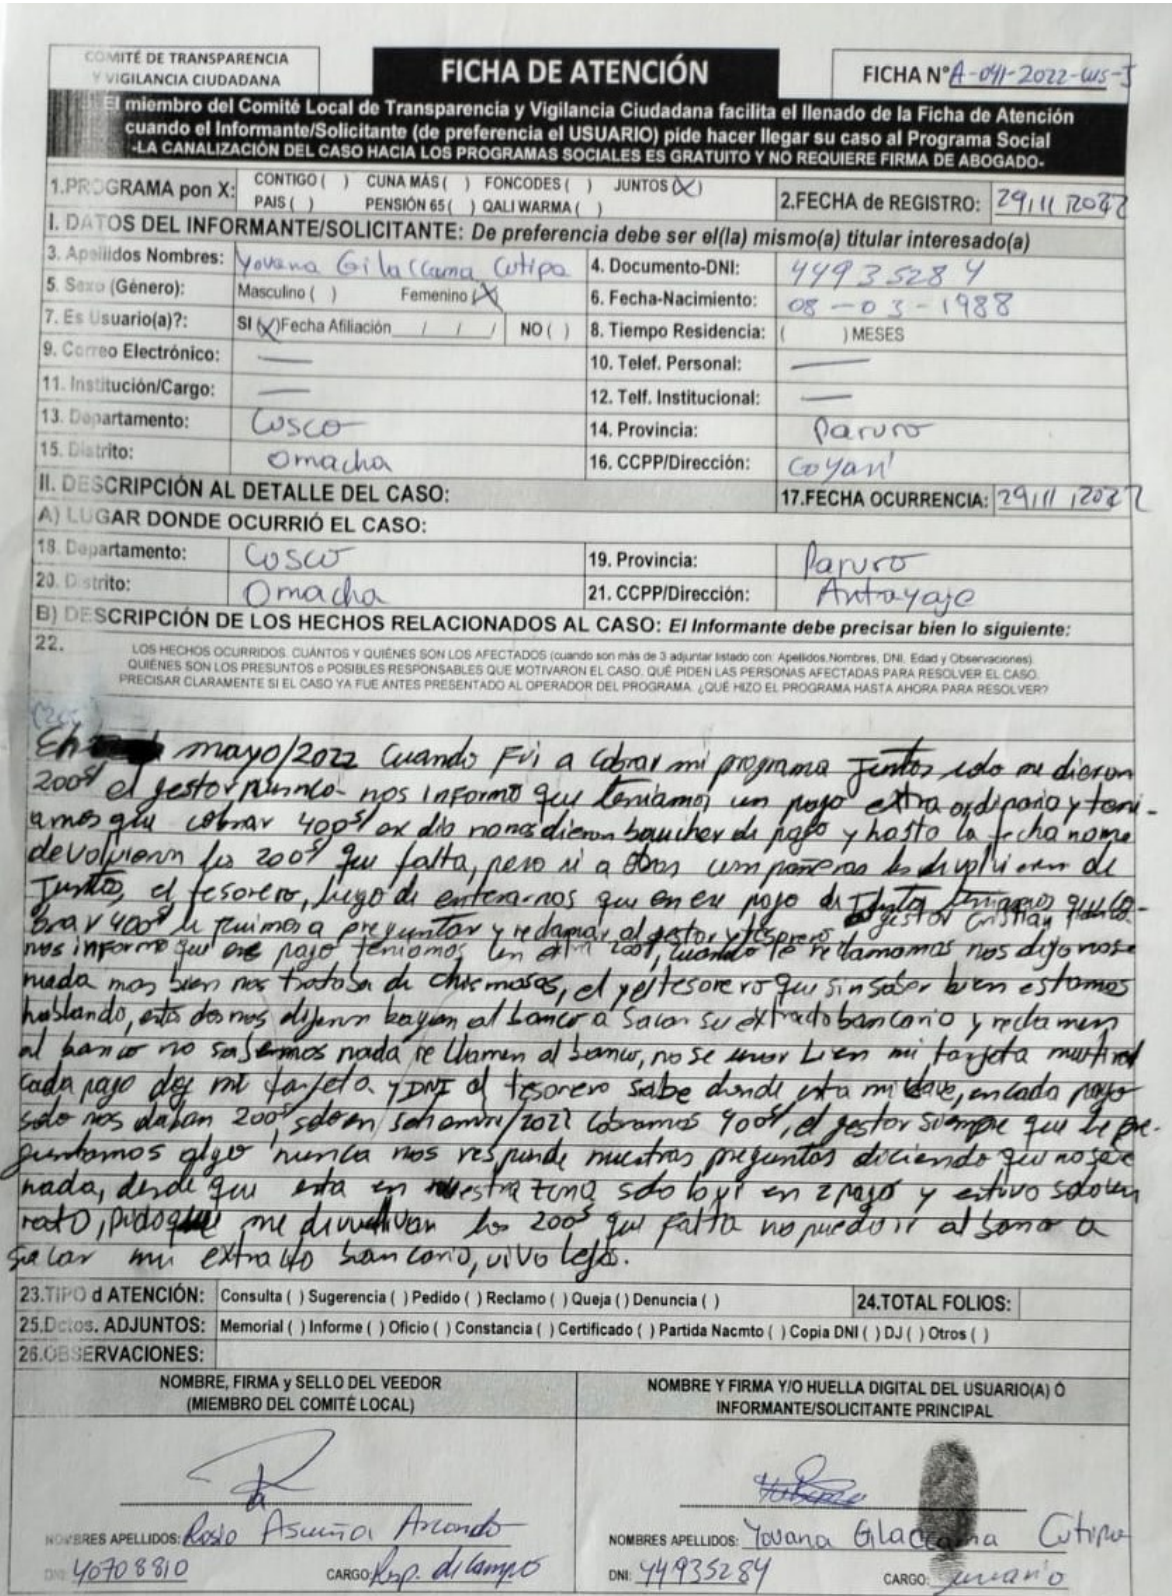 COMITÉ DE TRANSPARENCIA
Y VIGILANCIA CIUDADANA
FICHA DE ATENCIÓN
FICHA N° A-041-2022-WS-J
El miembro del Comité Local de Transparencia y Vigilancia Ciudadana facilita el llenado de la Ficha de Atención
cuando el Informante/Solicitante (de preferencia el USUARIO) pide hacer llegar su caso al Programa Social
-LA CANALIZACIÓN DEL CASO HACIA LOS PROGRAMAS SOCIALES ES GRATUITO Y NO REQUIERE FIRMA DE ABOGADO-
1.PROGRAMA pon X: CONTIGO ( ) CUNA MÁS ( ) FONCODES ( ) JUNTOS (X)
PAIS ( ) PENSIÓN 65 ( ) QALI WARMA ( )
2.FECHA de REGISTRO: 29/11/2022
I. DATOS DEL INFORMANTE/SOLICITANTE: De preferencia debe ser el(la) mismo(a) titular interesado(a)
3. Apellidos Nombres: Yovana Gilaccama Cutipa 4. Documento-DNI: 44935284
5. Sexo (Género): Masculino ( ) Femenino (X) 6. Fecha-Nacimiento: 08-03-1988
7. Es Usuario(a)?: SI (X) Fecha Afiliación / / / NO ( ) 8. Tiempo Residencia: ( ) MESES
9. Correo Electrónico: — 10. Telef. Personal: —
11. Institución/Cargo: — 12. Telf. Institucional: —
13. Departamento: Cusco 14. Provincia: Paruro
15. Distrito: Omacha 16. CCPP/Dirección: Coyani
II. DESCRIPCIÓN AL DETALLE DEL CASO: 17.FECHA OCURRENCIA: 29/11/2022
A) LUGAR DONDE OCURRIÓ EL CASO:
18. Departamento: Cusco 19. Provincia: Paruro
20. Distrito: Omacha 21. CCPP/Dirección: Antayaje
B) DESCRIPCIÓN DE LOS HECHOS RELACIONADOS AL CASO: El Informante debe precisar bien lo siguiente:
22. LOS HECHOS OCURRIDOS. CUÁNTOS Y QUIÉNES SON LOS AFECTADOS (cuando son más de 3 adjuntar listado con: Apellidos,Nombres, DNI, Edad y Observaciones)
QUIÉNES SON LOS PRESUNTOS o POSIBLES RESPONSABLES QUE MOTIVARON EL CASO. QUÉ PIDEN LAS PERSONAS AFECTADAS PARA RESOLVER EL CASO.
PRECISAR CLARAMENTE SI EL CASO YA FUE ANTES PRESENTADO AL OPERADOR DEL PROGRAMA. ¿QUÉ HIZO EL PROGRAMA HASTA AHORA PARA RESOLVER?
En mayo/2022 Cuando Fui a cobrar mi programa Juntos solo me dieron
200S/ el gestor nunca nos informo que teniamos un pago extra ordinario y teni-
amos que cobrar 400S/ ese dia no nos dieron baucher de pago y hasta la fecha no me
devolvieron los 200S/ que falta, pero si a otras compañeras les devolvieron de
Juntos, el tesorero, luego de enterarnos que en ese pago de Juntos teniamos que co-
brar 400S/ le fuimos a preguntar y reclamar al gestor y tesorero gestor Cristian nunca
nos informo que ese pago teniamos un extra 200S/, cuando le reclamamos nos dijo no se
nada mas bien nos trataba de chismosas, el y el tesorero que sin saber bien estamos
hablando, estos dos nos dijeron vayan al banco a sacar su extracto bancario y reclamen
al banco no sabemos nada reclamen al banco, no se usar bien mi tarjeta multired
cada pago doy mi tarjeta y DNI al tesorero sabe donde esta mi clave, en cada pago
solo nos daban 200S/ solo en setiembre/2022 cobramos 400S/, el gestor siempre que le pre-
guntamos algo nunca nos responde nuestras preguntas diciendo que no sabe
nada, desde que esta en nuestra zona solo lo vi en 2 pagos y estuvo solo un
rato, pido que me devuelvan los 200S/ que falta no puedo ir al banco a
sacar mi extracto bancario, vivo lejos.
23.TIPO d ATENCIÓN: Consulta ( ) Sugerencia ( ) Pedido ( ) Reclamo ( ) Queja ( ) Denuncia ( ) 24.TOTAL FOLIOS:
25.Dctos. ADJUNTOS: Memorial ( ) Informe ( ) Oficio ( ) Constancia ( ) Certificado ( ) Partida Nacmto ( ) Copia DNI ( ) DJ ( ) Otros ( )
26.OBSERVACIONES:
NOMBRE, FIRMA y SELLO DEL VEEDOR
(MIEMBRO DEL COMITÉ LOCAL)
NOMBRE Y FIRMA Y/O HUELLA DIGITAL DEL USUARIO(A) Ó
INFORMANTE/SOLICITANTE PRINCIPAL
NOMBRES APELLIDOS: Rosio Asuña Arcondo
DNI: 40708810 CARGO: Resp. de campo
NOMBRES APELLIDOS: Yovana Gilaccama Cutipa
DNI: 44935284 CARGO: usuario